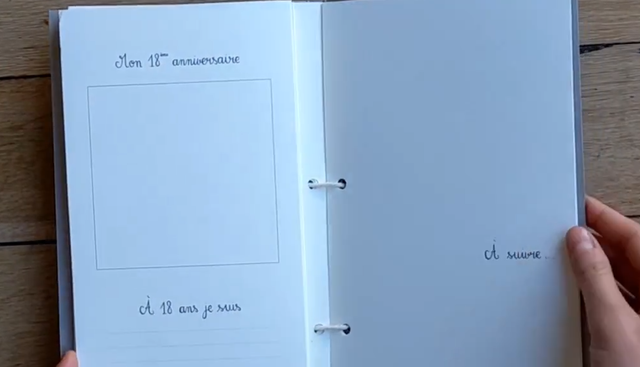 Mon 18ème anniversaire
À 18 ans je suis
À suivre...